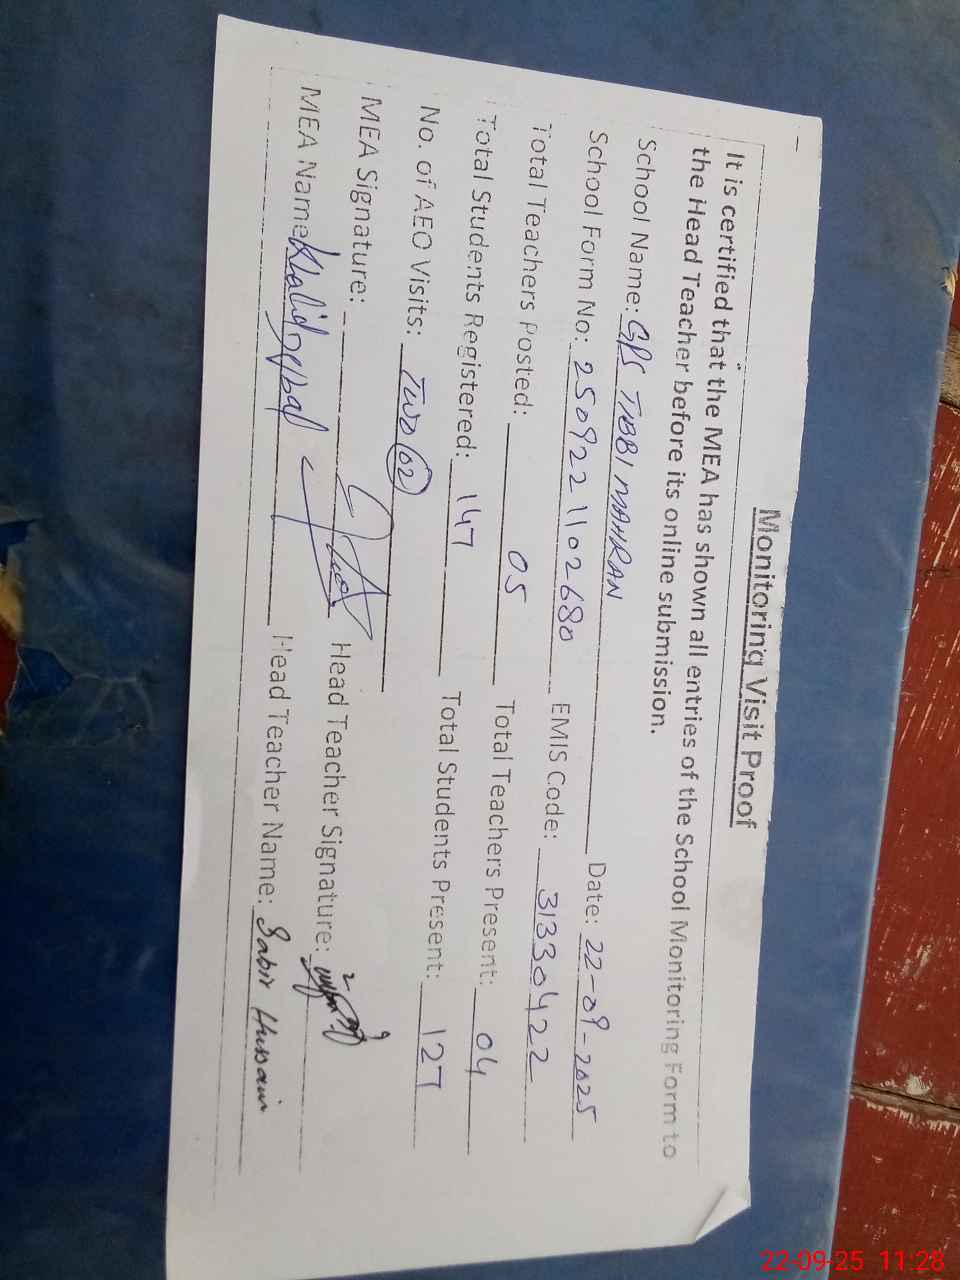 Monitoring Visit Proof
It is certified that the MEA has shown all entries of the School Monitoring Form to
the Head Teacher before its online submission.
School Name: GPS TIBBI MAHRAN Date: 22-09-2025
School Form No: 250922 1102680 EMIS Code: 31330422
Total Teachers Posted: 05 Total Teachers Present: 04
Total Students Registered: 147 Total Students Present: 127
No. of AEO Visits: Two (02)
MEA Signature: Head Teacher Signature:
MEA Name Khalid Iqbal Head Teacher Name: Sabir Hussain
22-09-25 11:28